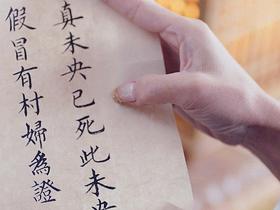 真未央已死此未央
假冒有村婦為證